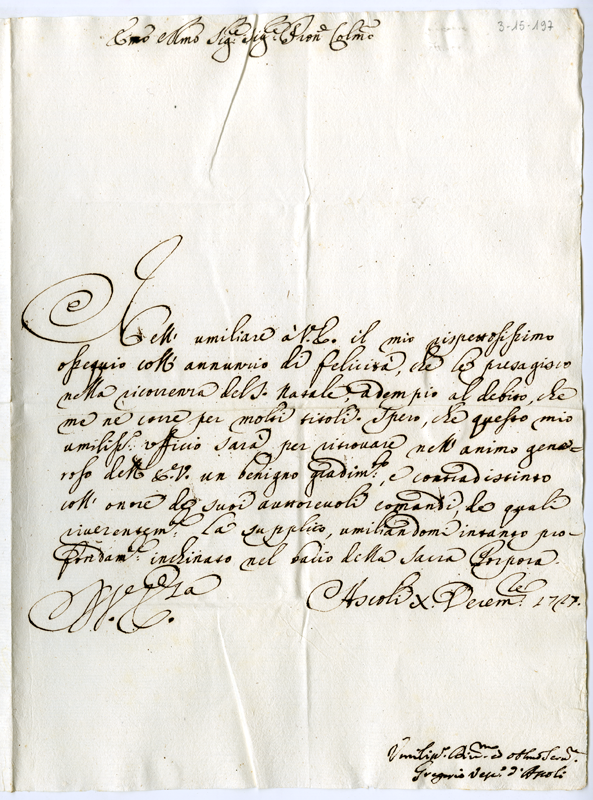 3-15-197
Emo e Rmo Sig.r Sig.r Pron Colmo
Nell' umiliare à V. E. il mio rispettosissimo
ossequio coll' annunzio di felicità, che le presagisco
nella ricorrenza del S. Natale, adempio al debito, che
me ne corre per molti titoli. Spero, che questo mio
umiliss.o ufficio sarà per ritrovare nell' animo gene=
roso dell' E. V. un benigno gradim.to, e contradistinto
coll' onore de suoi autorevoli comandi, de quali
riverentem.te La supplico, umiliandomi intanto pro=
fondam.te inchinato nel bacio della Sacra Porpora.
D. V. E.za
Ascoli X. Decem.bre 1727.
Umiliss.o Div.mo ed Obl.mo Serv.e
Gregorio Vesc.o d' Ascoli